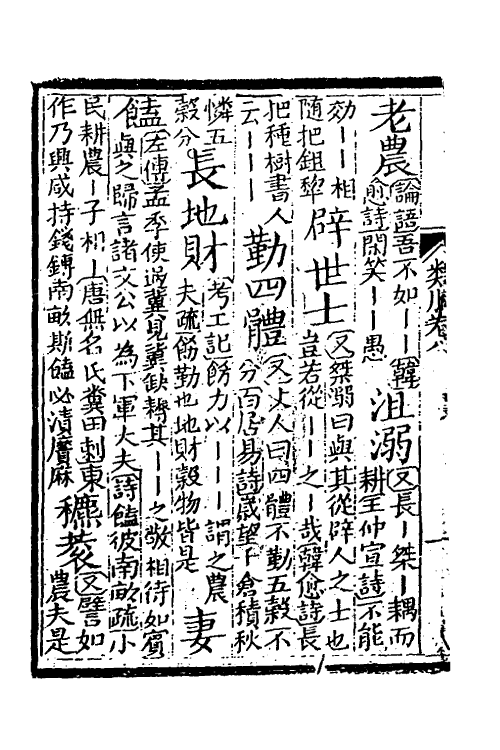 類川卷八
老農
論語吾不如〡〡韓
愈詩閑笑〡〡愚
沮溺
又長〡桀〡耦而
耕王仲宣詩不能
効〡〡相
隨把鉏犂
辟世士
又桀溺曰與其從辟人之士也
豈若從〡〡之〡哉韓愈詩長
把種樹書人
云〡〡〡
勤四體
又丈人曰四體不勤五穀不
分百居易詩歳望千倉積秋
憐五
穀分
長地財
考工記飭力以〡〡〡謂之農
夫疏飭勤也地財穀物皆是
妻
饁
左傳孟季使過冀見冀缺耨其〡〡之敬相待如賓
與之歸言諸文公以為下軍大夫詩饁彼南畝疏小
民耕農〡子相〡唐無名氏糞田刺東
作乃興咸持錢鎛南畝斯饁必漬黂麻
穮蔉
又譬如
農夫是